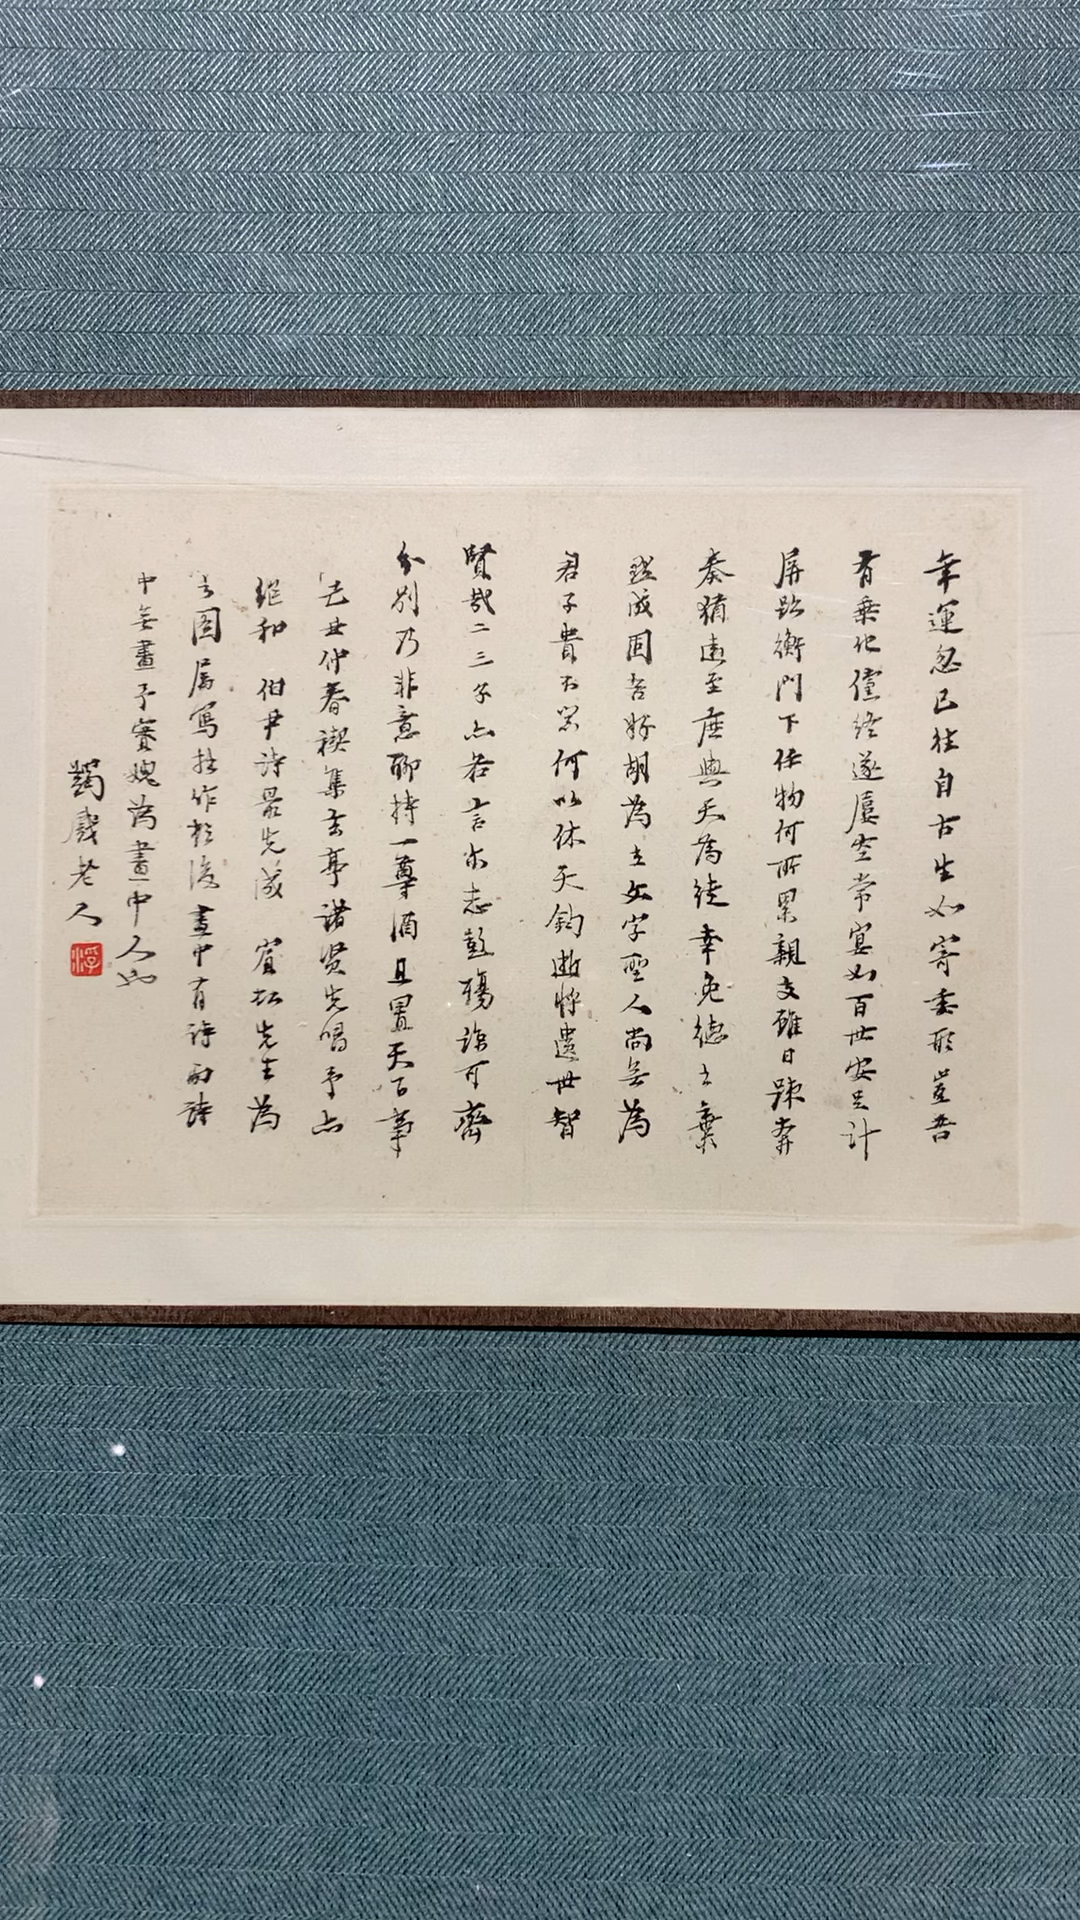 年運忽已往自古生如寄委形豈吾
有乘化儻終遂屢空常宴如百世安足計
屏跡衡門下任物何所累親交雖日疎奔
奏猶遠至庶與天為徒幸免德之棄
成固吾好胡為立文字聖人尚無為
君子貴不器何以休天鈞逝將遺世智
賢哉二三子亦各言尔志彭殤諒可齊
分別乃非意聊持一尊酒且置天下事
辛丑仲春禊集玄亭諸賢先唱予亦
繼和 伯尹詩最先成 賓虹先生為
之圖属寫拙作於後畫中有詩而詩
中無畫予實媿為畫中人也
蠲戲老人
浮